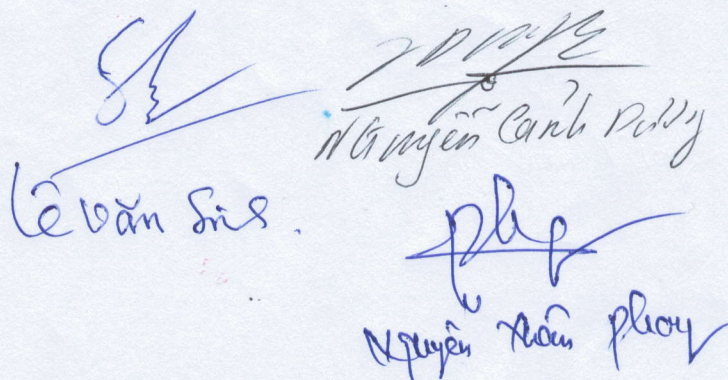 Lê Văn
Nguyễn Cảnh Dương
Nguyễn Xuân Phong